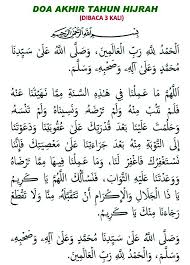 DOA AKHIR TAHUN HIJRAH
(DIBACA 3 KALI)
بِسْمِ اللهِ الرَّحْمٰنِ الرَّحِيْمِ
الْحَمْدُ لِلّٰهِ رَبِّ الْعَالَمِيْنَ، وَصَلَّى اللهُ عَلَى سَيِّدِنَا
مُحَمَّدٍ وَعَلَى آلِهِ، وَصَحْبِهِ، وَسَلَّمَ.
اَللّٰهُمَّ مَا عَمِلْنَا فِي هٰذِهِ السَّنَةِ مِمَّا نَهَيْتَنَا عَنْهُ
فَلَمْ نَتُبْ مِنْهُ وَلَمْ تَرْضَهُ، وَنَسِيْنَاهُ وَلَمْ تَنْسَهُ
وَحَلُمْتَ عَلَيْنَا بَعْدَ قُدْرَتِكَ عَلَى عُقُوْبَتِنَا وَدَعَوْتَنَا
إِلَى التَّوْبَةِ مِنْهُ بَعْدَ جُرْأَتِنَا عَلَى مَعْصِيَتِكَ فَإِنَّا
نَسْتَغْفِرُكَ فَاغْفِرْ لَنَا، وَمَا عَمِلْنَا فِيْهَا مِمَّا تَرْضَاهُ
وَوَعَدْتَنَا عَلَيْهِ الثَّوَابَ، فَنَسْأَلُكَ اللّٰهُمَّ يَا كَرِيْمُ
يَا ذَا الْجَلَالِ وَالْإِكْرَامِ أَنْ تَتَقَبَّلَهُ مِنَّا وَلَا تَقْطَعْ
رَجَاءَنَا مِنْكَ يَا كَرِيْمُ.
وَصَلَّى اللهُ عَلَى سَيِّدِنَا مُحَمَّدٍ وَعَلَى آلِهِ، وَصَحْبِهِ،
وَسَلَّمَ. وَالْحَمْدُ لِلّٰهِ رَبِّ الْعَالَمِيْنَ.